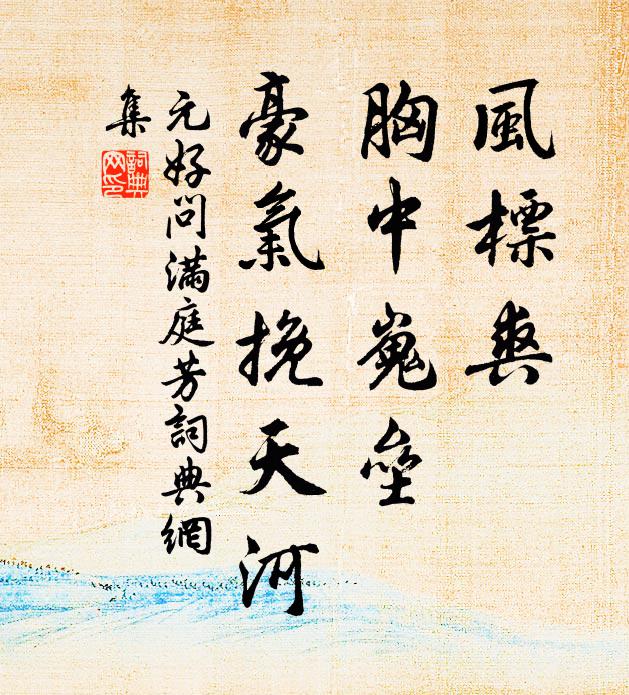 風標爽
胸中嵬壘
豪氣挽天河
元好问滿庭芳詞典網
集
詞典网印